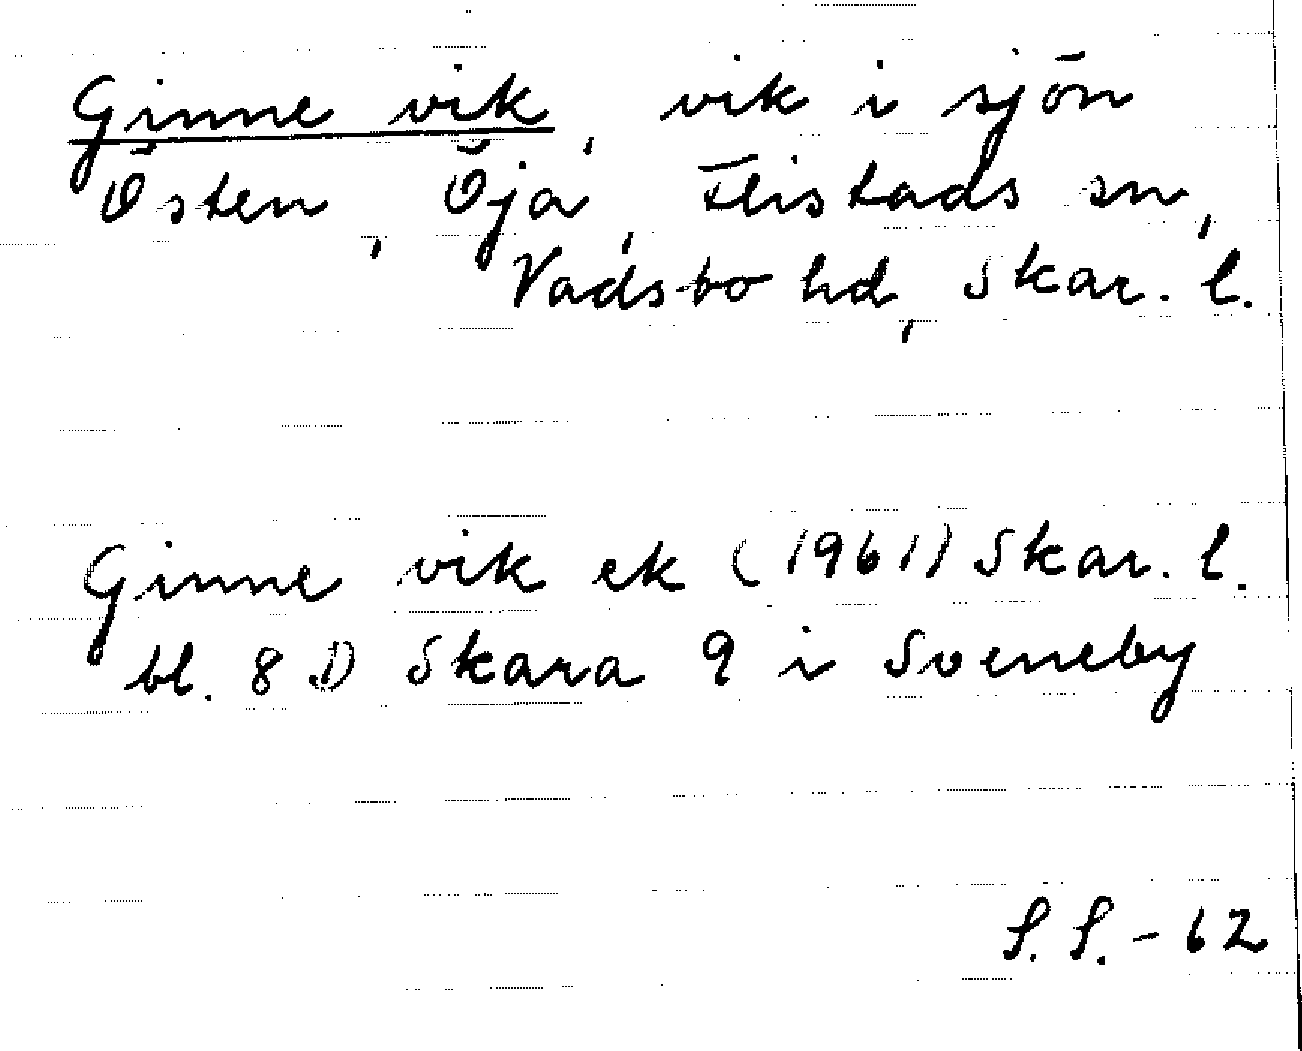 Ginne vik, vik i sjön
Östen, Öja, Flistads sn,
Vadsbo hd, Skar. l.
Ginne vik ek (1961) Skar. l.
bl. 8 D Skara 9 i Sveneby
S. S. - 62